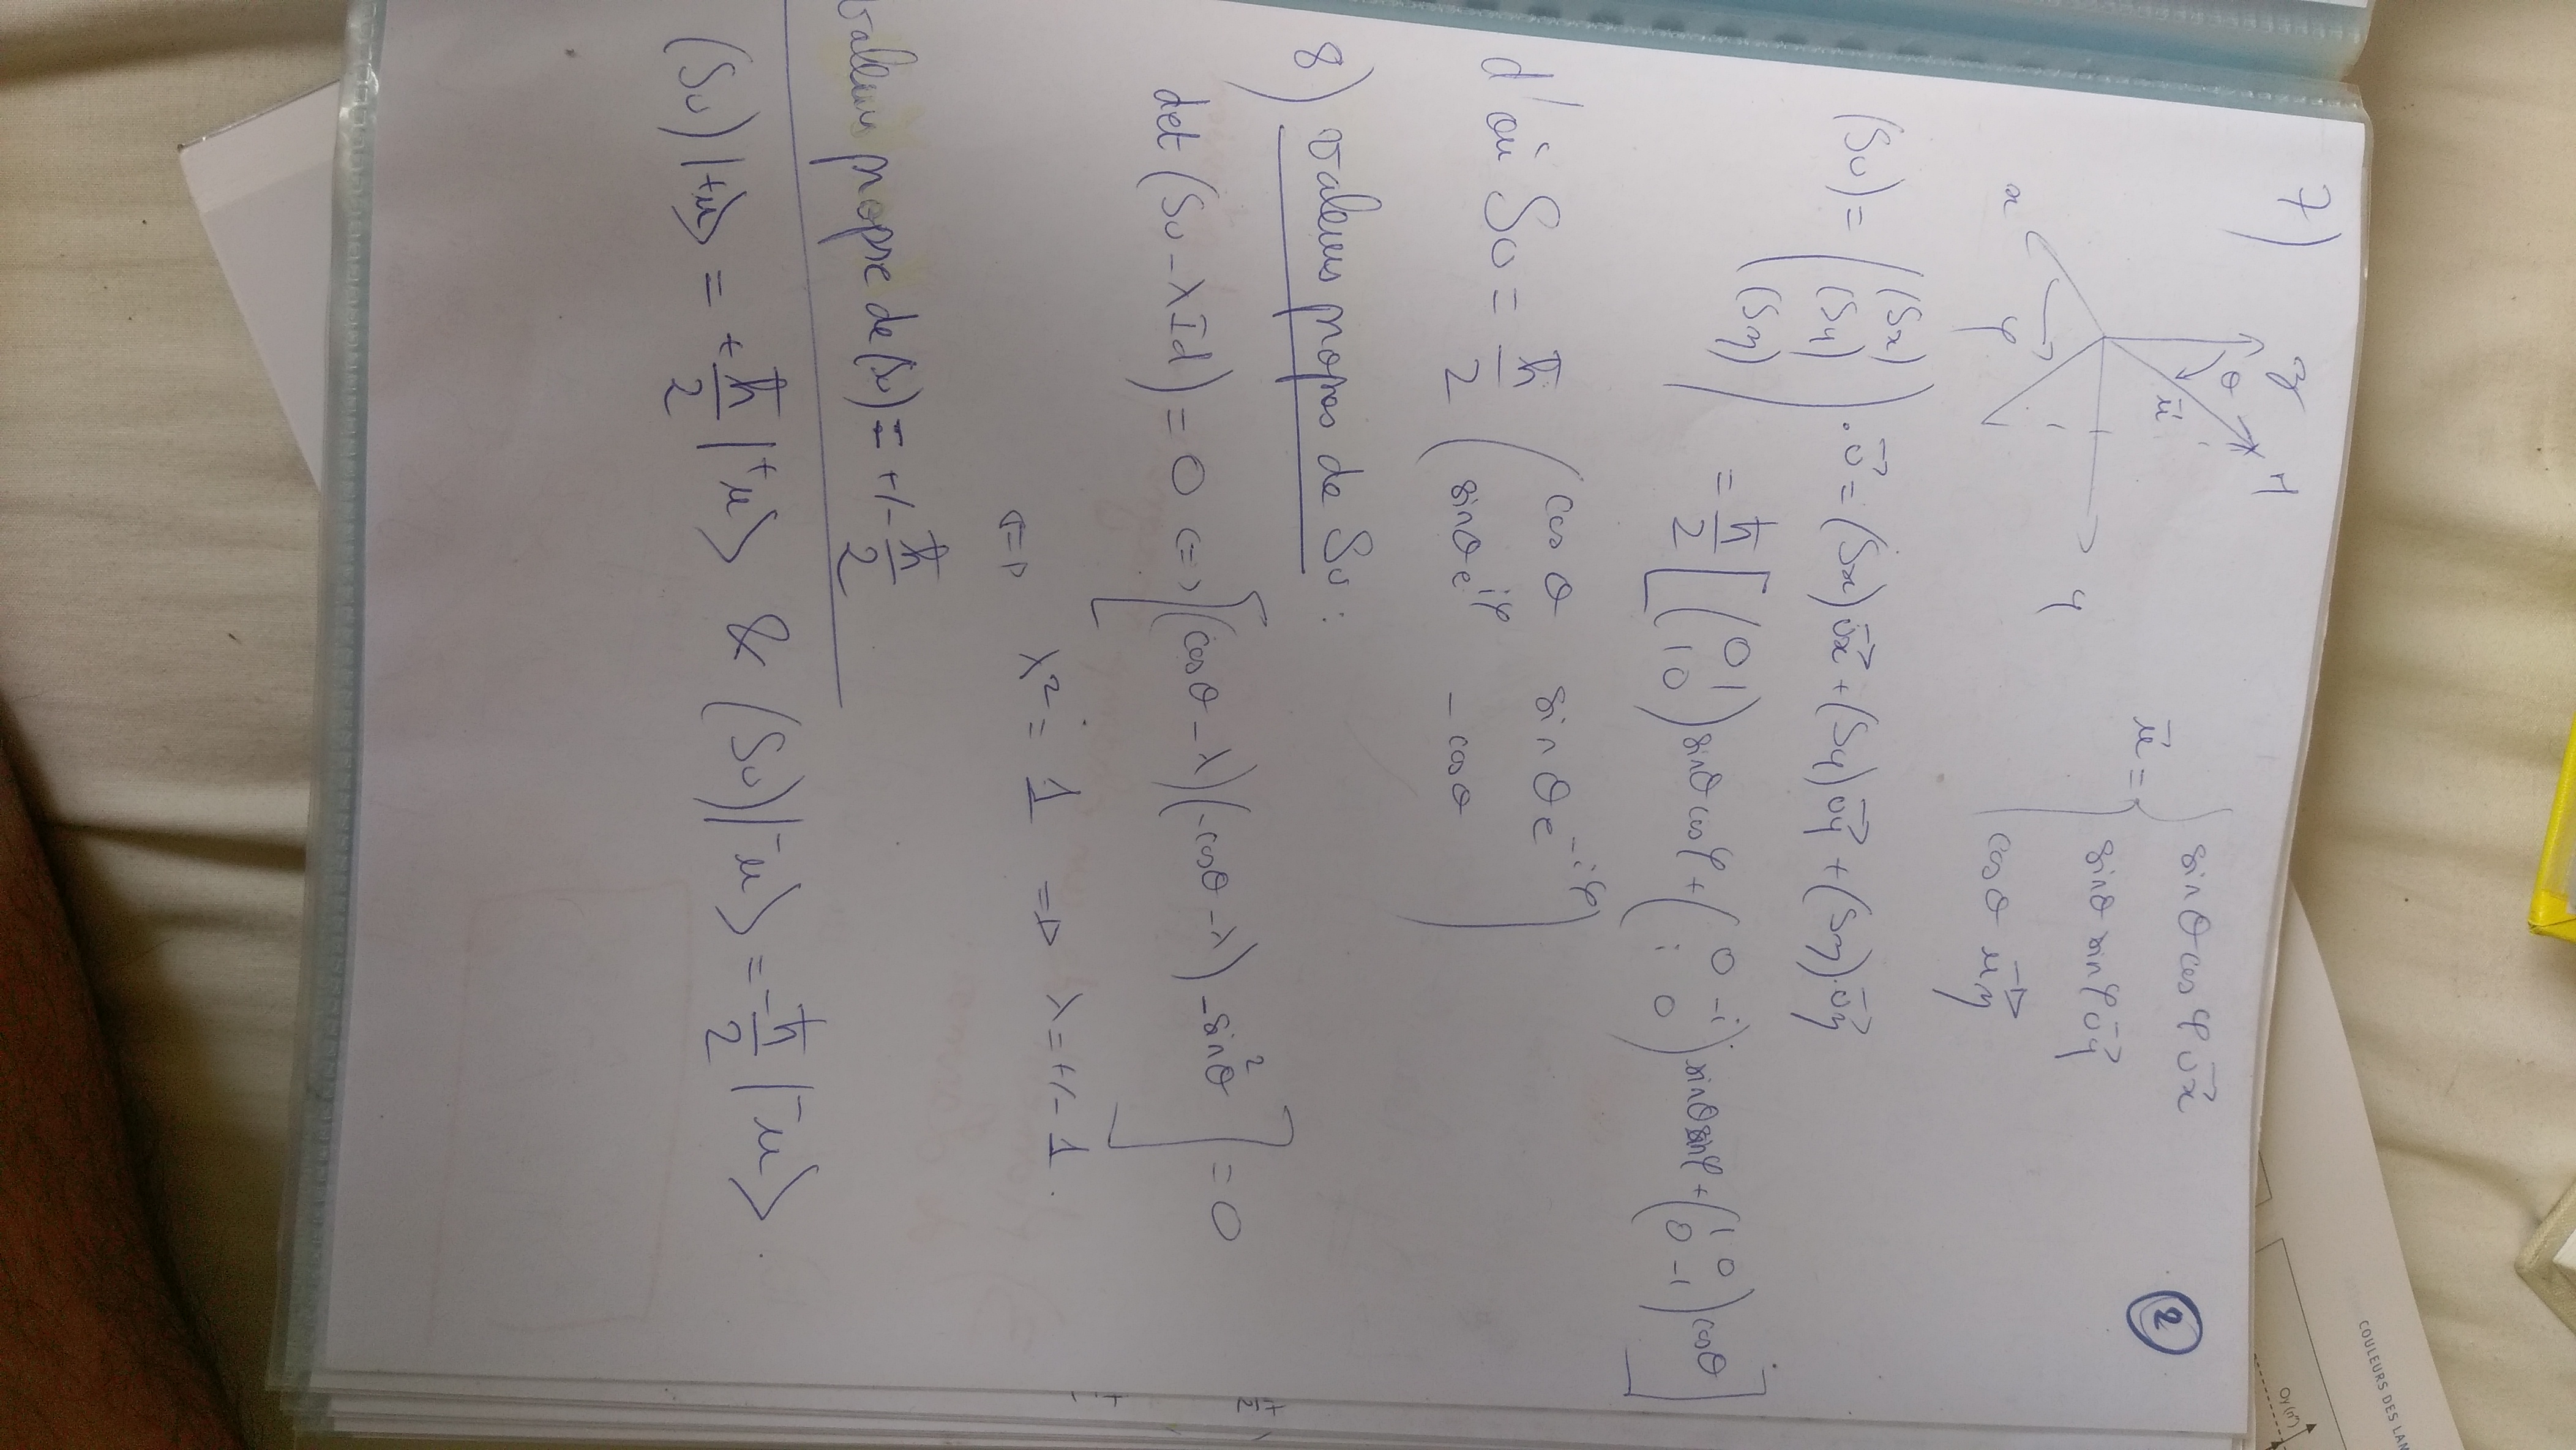 7)
z
θ
M
u⃗
y
x
φ
u⃗ = { sinθ cosφ u⃗x
sinθ sinφ u⃗y
cosθ u⃗z
2
(Su) = ((Sx) (Sy) (Sz)) . u⃗ = (Sx)u⃗x + (Sy)u⃗y + (Sz).u⃗z
= ħ/2 [ (0 1 / 1 0) sinθ cosφ + (0 -i / i 0) sinθ sinφ + (1 0 / 0 -1) cosθ ]
d'où Su = ħ/2 ( cosθ sinθ e^-iφ
sinθ e^iφ - cosθ )
8) valeurs propres de Su :
det (Su - λId) = 0 <=> [(cosθ - λ)(-cosθ - λ) - sin²θ] = 0
<=> λ² = 1 => λ = +/- 1.
valeurs propre de (Su) = +/- ħ/2
(Su)|+u> = + ħ/2 |+u> & (Su)|-u> = - ħ/2 |-u>
COULEURS DES LAN
Oy (n°)